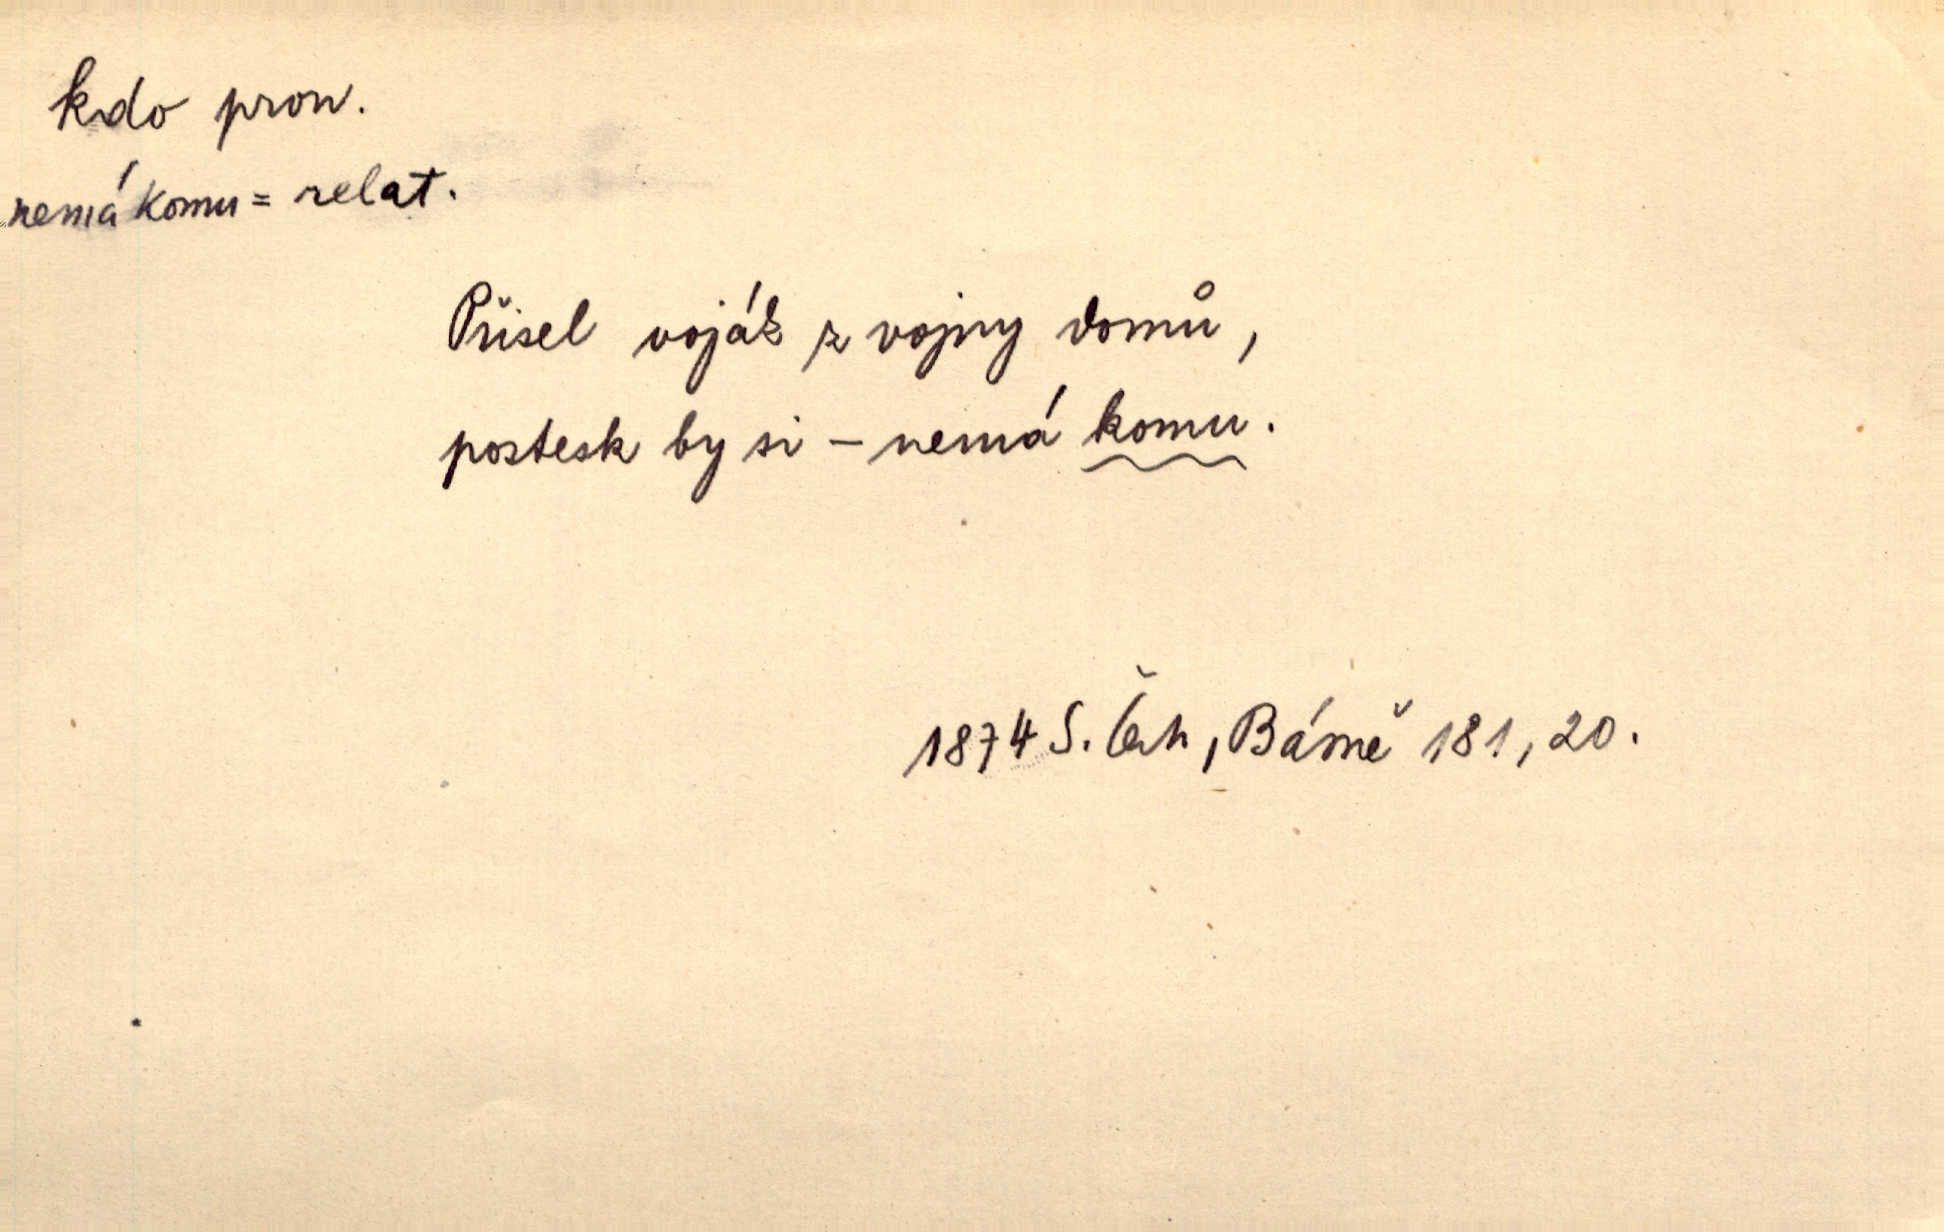 kdo pron.
nemá komu = relat.
Přisel voják z vojny domů,
postesk by si – nemá komu.
1874 S. Čech, Básně 181, 20.